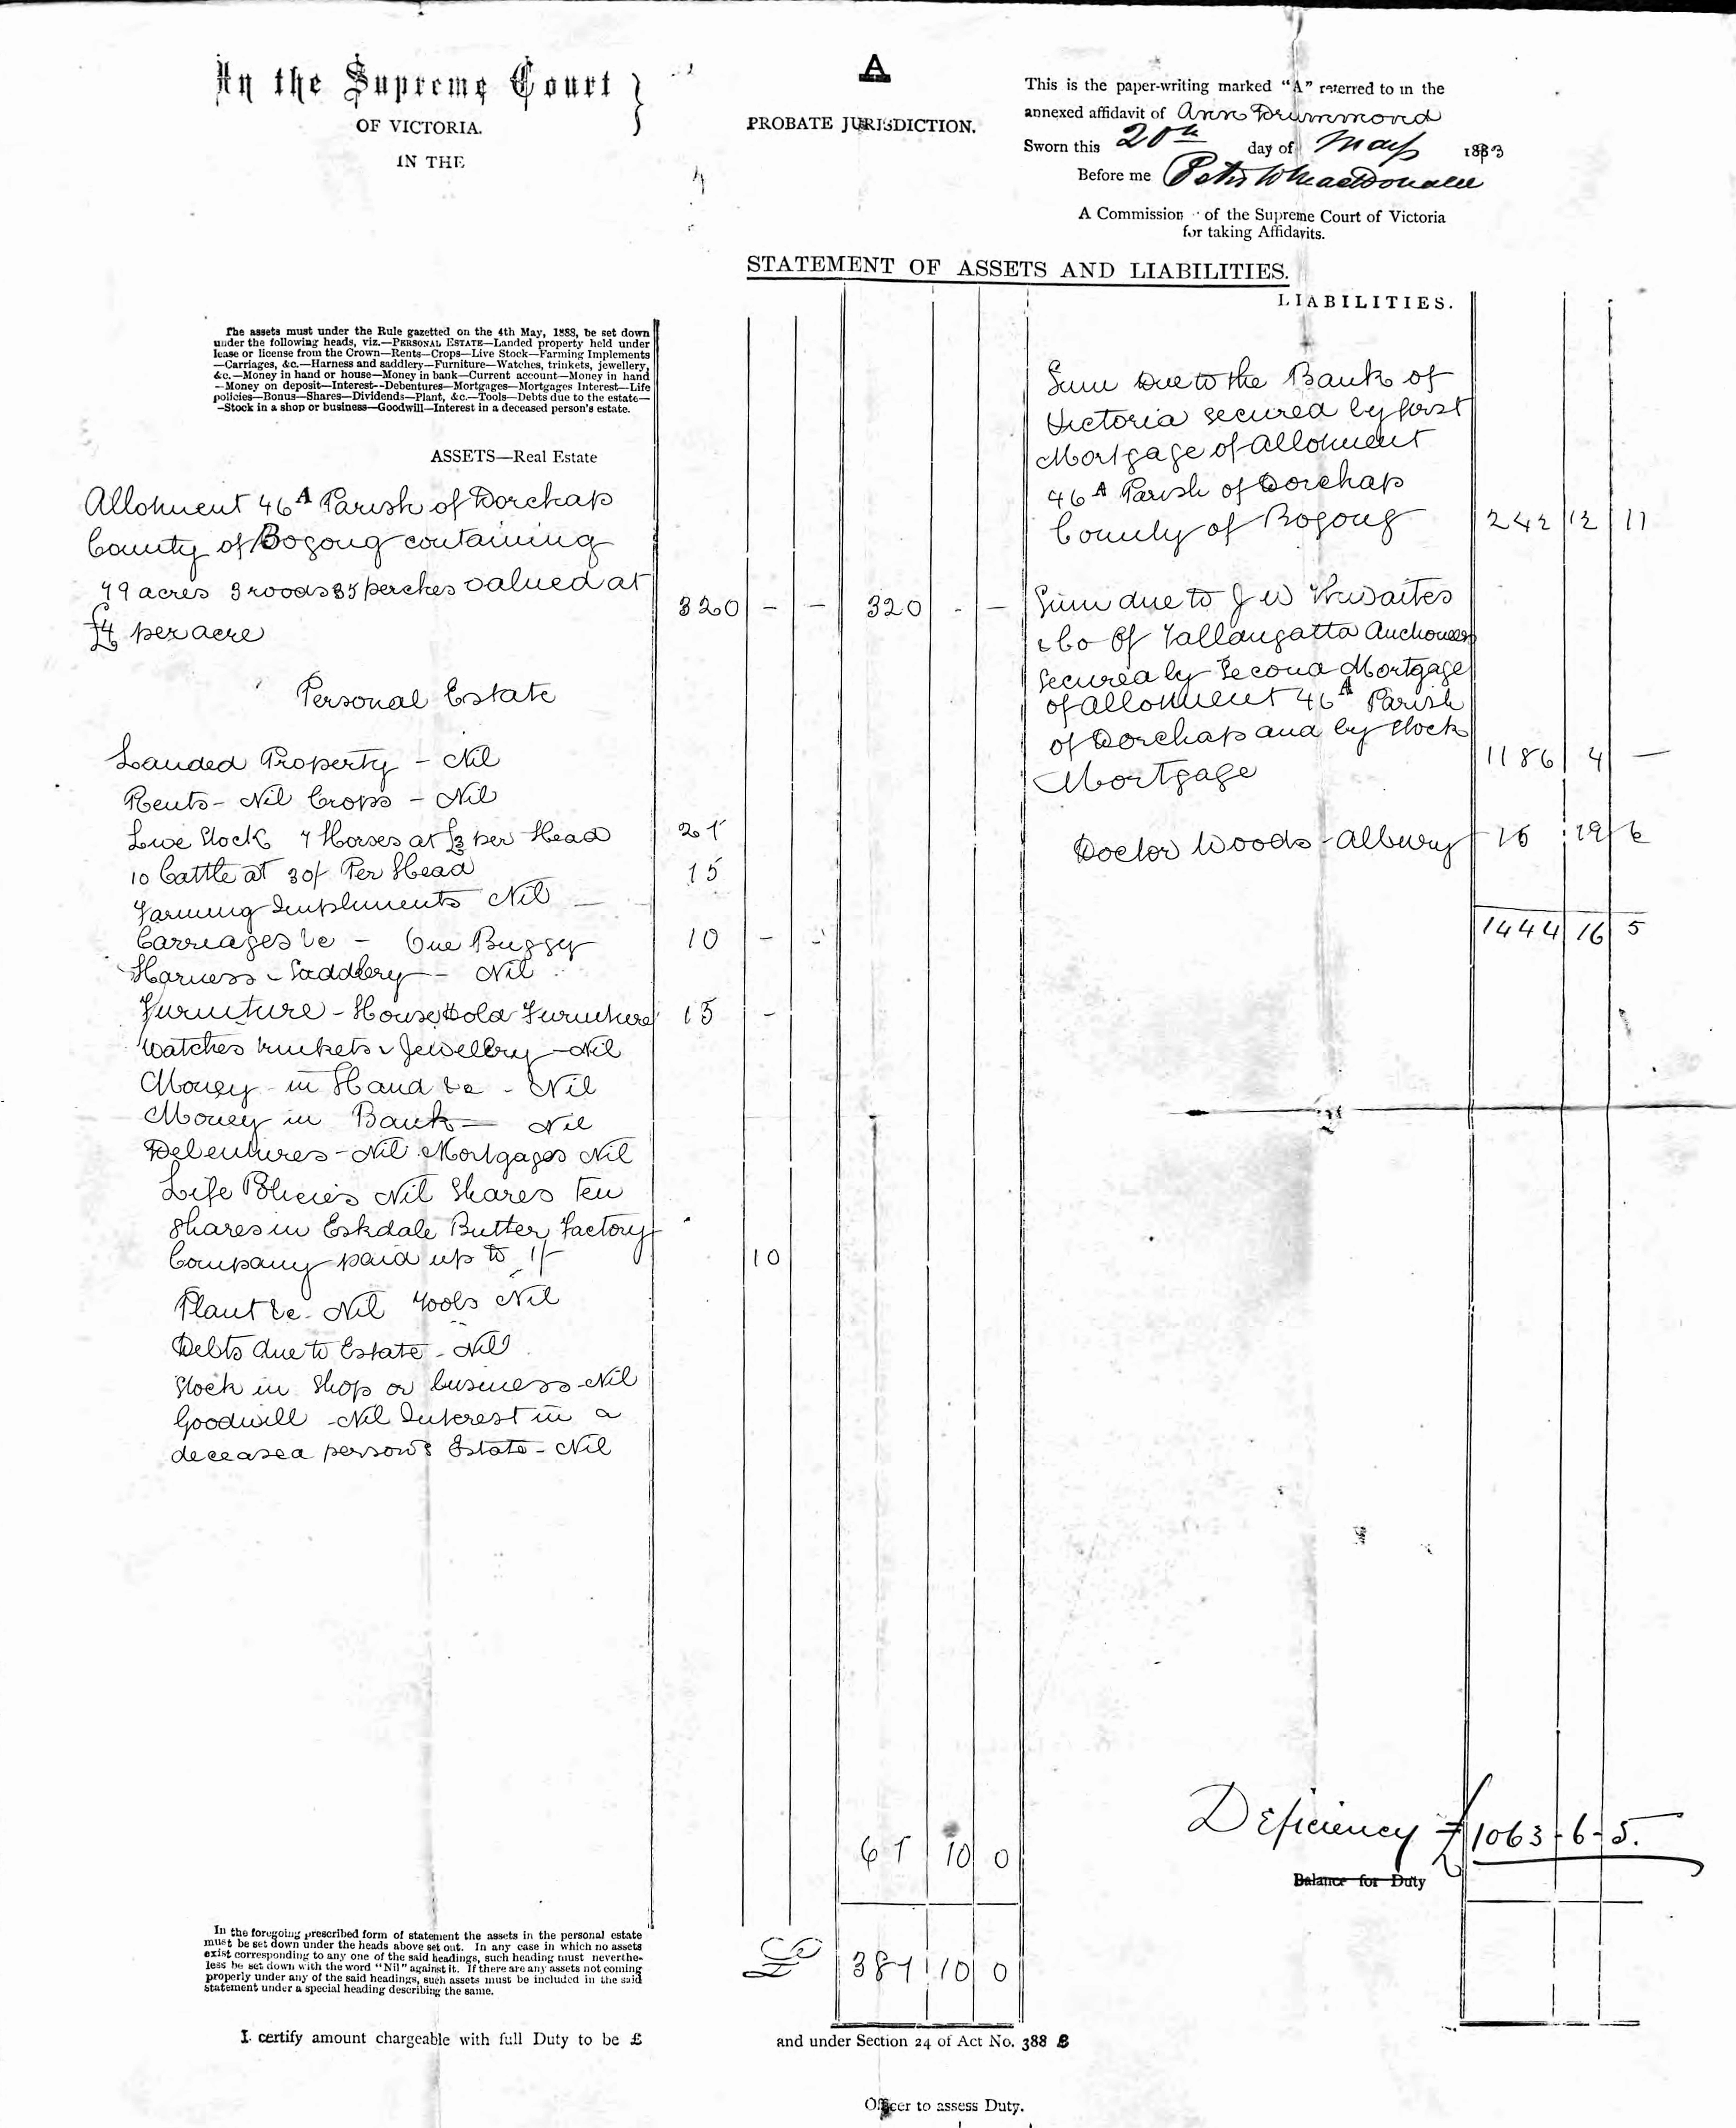 In the Supreme Court
OF VICTORIA.
IN THE
A
PROBATE JURISDICTION.
This is the paper-writing marked "A" referred to in the
annexed affidavit of Ann Drummond
Sworn this 20th day of May 1893
Before me Peter W MacDonald
A Commission of the Supreme Court of Victoria
for taking Affidavits.
STATEMENT OF ASSETS AND LIABILITIES.
The assets must under the Rule gazetted on the 4th May, 1888, be set down
under the following heads, viz.—PERSONAL ESTATE—Landed property held under
lease or license from the Crown—Rents—Crops—Live Stock—Farming Implements
—Carriages, &c.—Harness and saddlery—Furniture—Watches, trinkets, jewellery,
&c.—Money in hand or house—Money in bank—Current account—Money in hand
—Money on deposit—Interest—Debentures—Mortgages—Mortgages Interest—Life
policies—Bonus—Shares—Dividends—Plant, &c.—Tools—Debts due to the estate—
—Stock in a shop or business—Goodwill—Interest in a deceased person's estate.
ASSETS—Real Estate
Allotment 46A Parish of Dorchap
County of Bogong containing
79 acres 3 roods 35 perches valued at
£4 per acre 320 - - 320 - -
Personal Estate
Landed Property - Nil
Rents - Nil Crops - Nil
Live Stock 7 Horses at £3 per Head 21
10 Cattle at 30/ Per Head 15
Farming Implements Nil —
Carriages &c - One Buggy 10 - -
Harness & Saddlery - Nil
Furniture - Household Furniture 15 -
Watches trinkets & Jewellery - Nil
Money in Hand &c - Nil
Money in Bank - Nil
Debentures - Nil Mortgages Nil
Life Policies Nil Shares Ten
Shares in Eskdale Butter Factory
Company paid up to 1/- 10
Plant &c. Nil Tools Nil
Debts due to Estate - Nil
Stock in Shop or business - Nil
Goodwill - Nil Interest in a
deceased persons Estate - Nil
61 10 0
381 10 0
LIABILITIES.
Sum due to the Bank of
Victoria secured by first
Mortgage of allotment
46A Parish of Dorchap
County of Bogong 242 12 11
Sum due to J W Thwaites
& Co of Tallangatta Auctioneers
secured by Second Mortgage
of allotment 46A Parish
of Dorchap and by Stock
Mortgage 1186 4 —
Doctor Woods - Albury 15 19 6
1444 16 5
Deficiency £1063-6-5.
Balance for Duty
In the foregoing prescribed form of statement the assets in the personal estate
must be set down under the heads above set out. In any case in which no assets
exist corresponding to any one of the said headings, such heading must neverthe-
less be set down with the word "Nil" against it. If there are any assets not coming
properly under any of the said headings, such assets must be included in the said
Statement under a special heading describing the same.
I certify amount chargeable with full Duty to be £ and under Section 24 of Act No. 388 £
Officer to assess Duty.